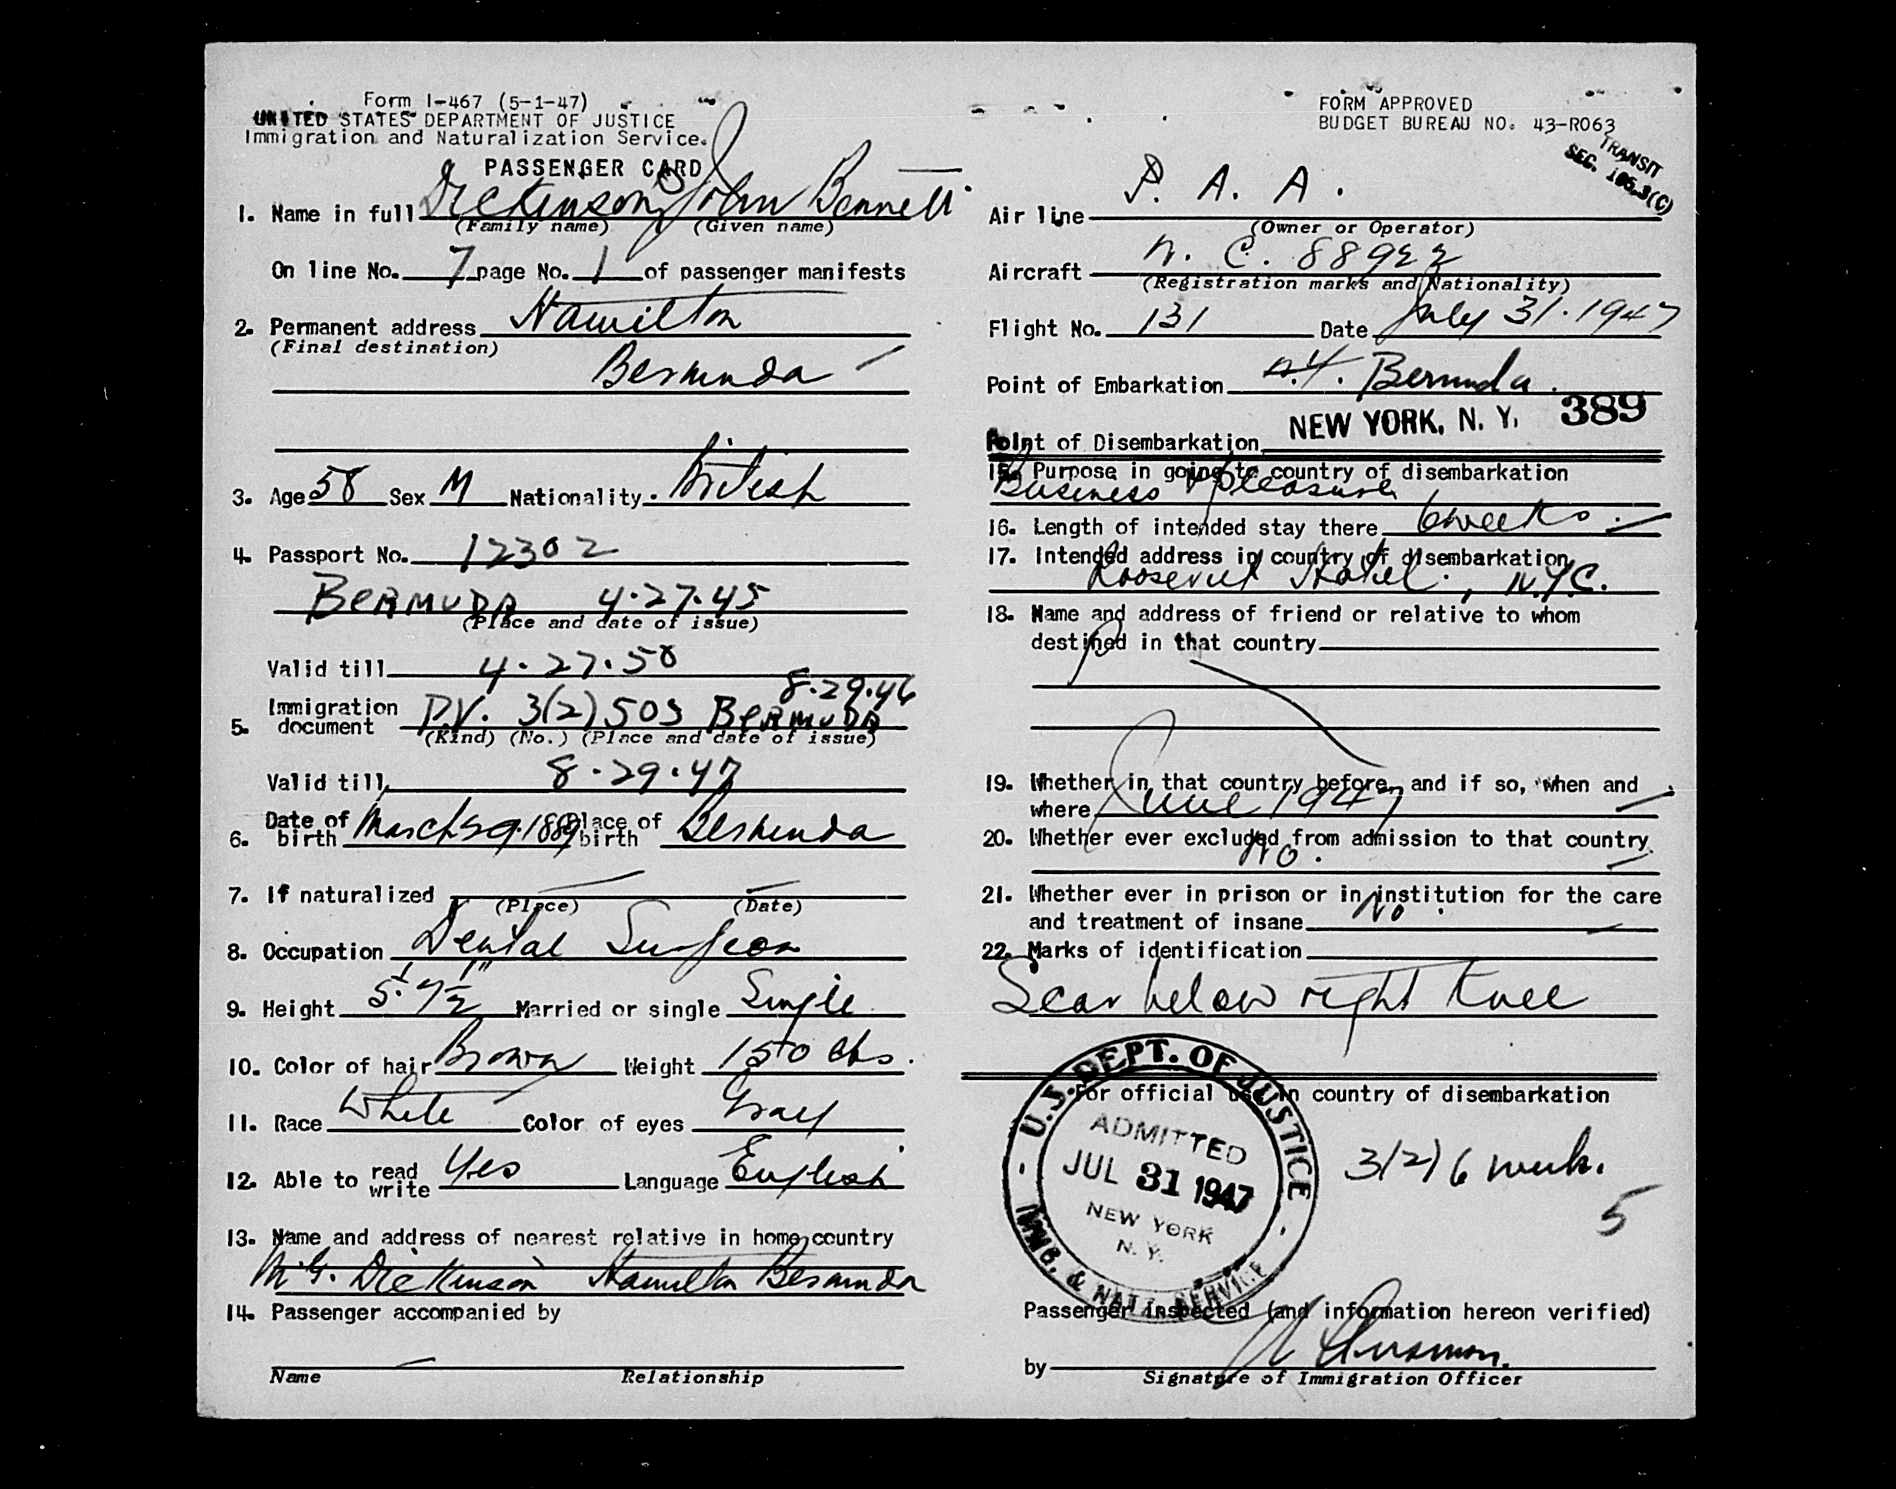 Form I-467 (5-1-47)
UNITED STATES DEPARTMENT OF JUSTICE
Immigration and Naturalization Service.
PASSENGER CARD
1. Name in full Dickinson, John Bennett
(Family name) (Given name)
On line No. 7 page No. 1 of passenger manifests
2. Permanent address Hamilton
(Final destination)
Bermuda
3. Age 58 Sex M Nationality. British
4. Passport No. 12302
BERMUDA 4.27.45
(Place and date of issue)
Valid till 4.27.50
8.29.46
5. Immigration document P.V. 3(2) 503 BERMUDA
(Kind) (No.) (Place and date of issue)
Valid till 8.29.47
6. Date of birth March 29.1889 Place of birth Bermuda
7. If naturalized
(Place) (Date)
8. Occupation Dental Surgeon
9. Height 5' 7 1/2" Married or single Single
10. Color of hair Brown Weight 150 lbs.
11. Race White Color of eyes Gray
12. Able to read write Yes Language English
13. Name and address of nearest relative in home country
Dickinson Hamilton Bermuda
14. Passenger accompanied by
Name Relationship
FORM APPROVED
BUDGET BUREAU NO. 43-R063
TRANSIT
SEC. 105.3(C)
Air line P. A. A.
(Owner or Operator)
Aircraft N. C. 88922
(Registration marks and Nationality)
Flight No. 131 Date July 31. 1947
Point of Embarkation N.Y. Bermuda.
389
Point of Disembarkation NEW YORK, N. Y.
15. Purpose in going to country of disembarkation
Business & pleasure
16. Length of intended stay there 6 weeks
17. Intended address in country of disembarkation
Roosevelt Hotel, N.Y.C.
18. Name and address of friend or relative to whom
destined in that country
19. Whether in that country before, and if so, when and
where June 1947
20. Whether ever excluded from admission to that country
No.
21. Whether ever in prison or in institution for the care
and treatment of insane No.
22. Marks of identification
Scar below right knee
For official use in country of disembarkation
U.S. DEPT. OF JUSTICE
ADMITTED
JUL 31 1947
NEW YORK
N. Y.
IMMG. & NATZ. SERVICE
3(2) 6 weeks.
5
Passenger inspected (and information hereon verified)
by
Signature of Immigration Officer